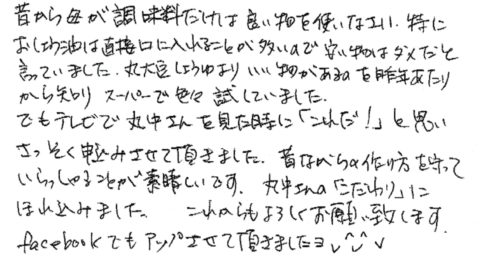 昔から母が調味料だけは良い物を使いなさい。特に
おしょう油は直接口に入れることが多いので安い物はダメだと
言っていました。丸大豆しょうゆより いい物があるのを昨年あたり
から知り スーパーで色々試していました。
でもテレビで丸中さんを見た時に「これだ！」と思い
さっそく申込みさせて頂きました。昔ながらの作り方を守って
いらっしゃることが素晴しいです。丸中さんの「こだわり」に
ほれ込みました。 これからもよろしくお願い致します。
facebookでもアップさせて頂きましたヨ